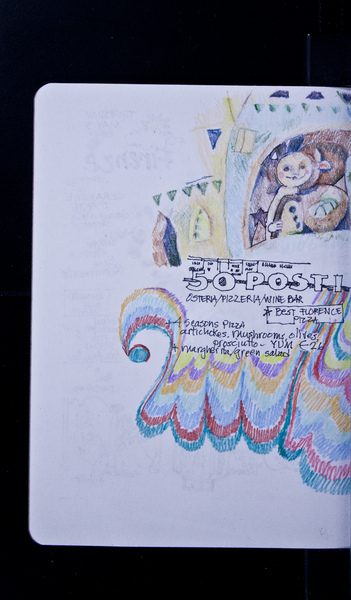 50-POSTI
OSTERIA/PIZZERIA/WINE BAR
* BEST FLORENCE
PIZZA
4 seasons Pizza
artichokes, mushrooms, olives,
prosciutto - YUM €24
+ margherita/green salad